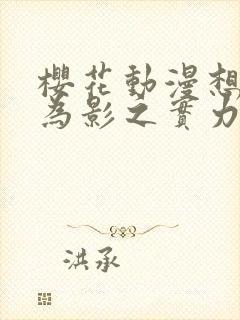 櫻花動漫想
為影之實力
洪承